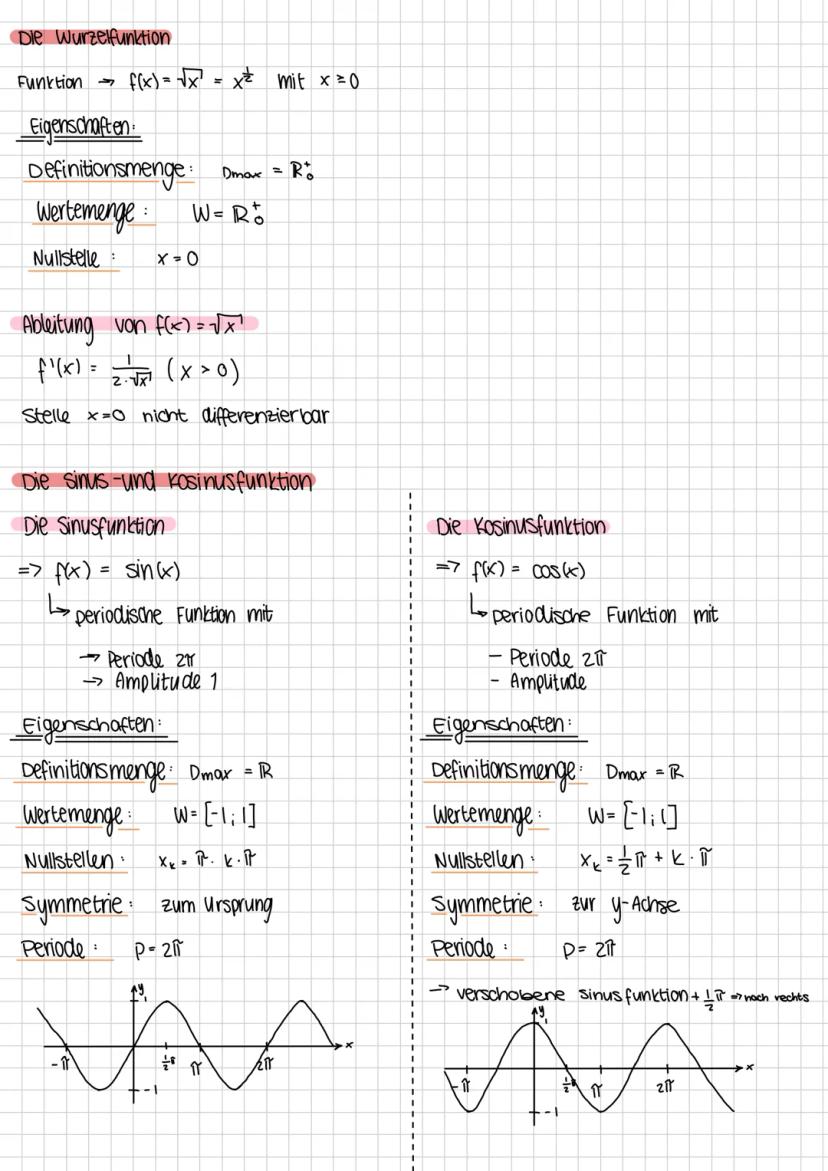 Die Wurzelfunktion
Funktion → f(x) = √x = x^½ mit x ≥ 0
Eigenschaften:
Definitionsmenge: Dmax = ℝ₀⁺
Wertemenge: W = ℝ₀⁺
Nullstelle: x = 0
Ableitung von f(x) = √x
f'(x) = 1/(2·√x) (x > 0)
Stelle x=0 nicht differenzierbar
Die Sinus-und Kosinusfunktion
Die Sinusfunktion
=> f(x) = sin(x)
↳ periodische Funktion mit
→ Periode 2π
→ Amplitude 1
Eigenschaften:
Definitionsmenge: Dmax = ℝ
Wertemenge: W = [-1; 1]
Nullstellen: xₖ = π · k · π
Symmetrie: zum Ursprung
Periode: p = 2π
y
1
-π ½π π 2π x
-1
Die Kosinusfunktion
=> f(x) = cos(x)
↳ periodische Funktion mit
- Periode 2π
- Amplitude
Eigenschaften:
Definitionsmenge: Dmax = ℝ
Wertemenge: W = [-1; 1]
Nullstellen: xₖ = ½π + k · π
Symmetrie: zur y-Achse
Periode: p = 2π
→ verschobene sinusfunktion + ½π => nach rechts
y
1
-π ½π π 2π x
-1